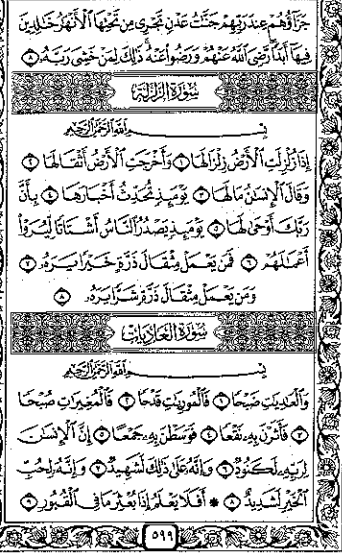 جَزَآؤُهُمْ عِندَ رَبِّهِمْ جَنَّٰتُ عَدْنٍ تَجْرِى مِن تَحْتِهَا ٱلْأَنْهَٰرُ خَٰلِدِينَ
فِيهَآ أَبَدًا رَّضِىَ ٱللَّهُ عَنْهُمْ وَرَضُوا۟ عَنْهُ ذَٰلِكَ لِمَنْ خَشِىَ رَبَّهُۥ ٨
سُورَةُ الزَّلْزَلَةِ
بِسْمِ ٱللَّهِ ٱلرَّحْمَٰنِ ٱلرَّحِيمِ
إِذَا زُلْزِلَتِ ٱلْأَرْضُ زِلْزَالَهَا ١ وَأَخْرَجَتِ ٱلْأَرْضُ أَثْقَالَهَا ٢
وَقَالَ ٱلْإِنسَٰنُ مَا لَهَا ٣ يَوْمَئِذٍ تُحَدِّثُ أَخْبَارَهَا ٤ بِأَنَّ
رَبَّكَ أَوْحَىٰ لَهَا ٥ يَوْمَئِذٍ يَصْدُرُ ٱلنَّاسُ أَشْتَاتًا لِّيُرَوْا۟
أَعْمَٰلَهُمْ ٦ فَمَن يَعْمَلْ مِثْقَالَ ذَرَّةٍ خَيْرًا يَرَهُۥ ٧
وَمَن يَعْمَلْ مِثْقَالَ ذَرَّةٍ شَرًّا يَرَهُۥ ٨
سُورَةُ العَادِيَاتِ
بِسْمِ ٱللَّهِ ٱلرَّحْمَٰنِ ٱلرَّحِيمِ
وَٱلْعَٰدِيَٰتِ ضَبْحًا ١ فَٱلْمُورِيَٰتِ قَدْحًا ٢ فَٱلْمُغِيرَٰتِ صُبْحًا
٣ فَأَثَرْنَ بِهِۦ نَقْعًا ٤ فَوَسَطْنَ بِهِۦ جَمْعًا ٥ إِنَّ ٱلْإِنسَٰنَ
لِرَبِّهِۦ لَكَنُودٌ ٦ وَإِنَّهُۥ عَلَىٰ ذَٰلِكَ لَشَهِيدٌ ٧ وَإِنَّهُۥ لِحُبِّ
ٱلْخَيْرِ لَشَدِيدٌ ٨ ۞ أَفَلَا يَعْلَمُ إِذَا بُعْثِرَ مَا فِى ٱلْقُبُورِ ٩
٥٩٩